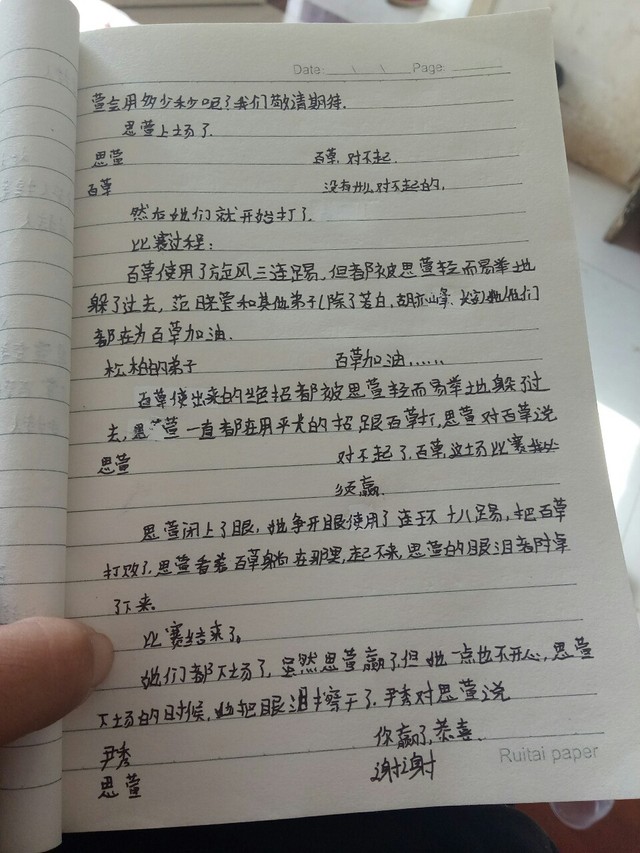 Date: \ \ Page:
萱会用多少秒呢?我们敬请期待.
思萱上场了.
思萱 百草,对不起.
百草 没有什么对不起的,
然后她们就开始打了.
比赛过程:
百草使用了旋风三连踢,但都被思萱轻而易举地
躲了过去,范晓莹和其他弟子(除了若白,胡亦峰、 他们
都在为百草加油.
松柏的弟子 百草加油……
百草使出来的绝招都被思萱轻而易举地躲了过
去,思萱一直都在用平常的招跟百草打,思萱对百草说
思萱 对不起了,百草,这场比赛我必
须赢.
思萱闭上了眼,她争开眼使用了连环十八踢,把百草
打败了.思萱看着百草躺在那里,起不来,思萱的眼泪者附掉
了下来。
比赛结束了。
她们都下场了,虽然思萱赢了,但她一点也不开心,思萱
下场的时候,她把眼泪擦干了.尹秀对思萱说
尹秀 你赢了,恭喜.
思萱 谢谢
Ruitai paper